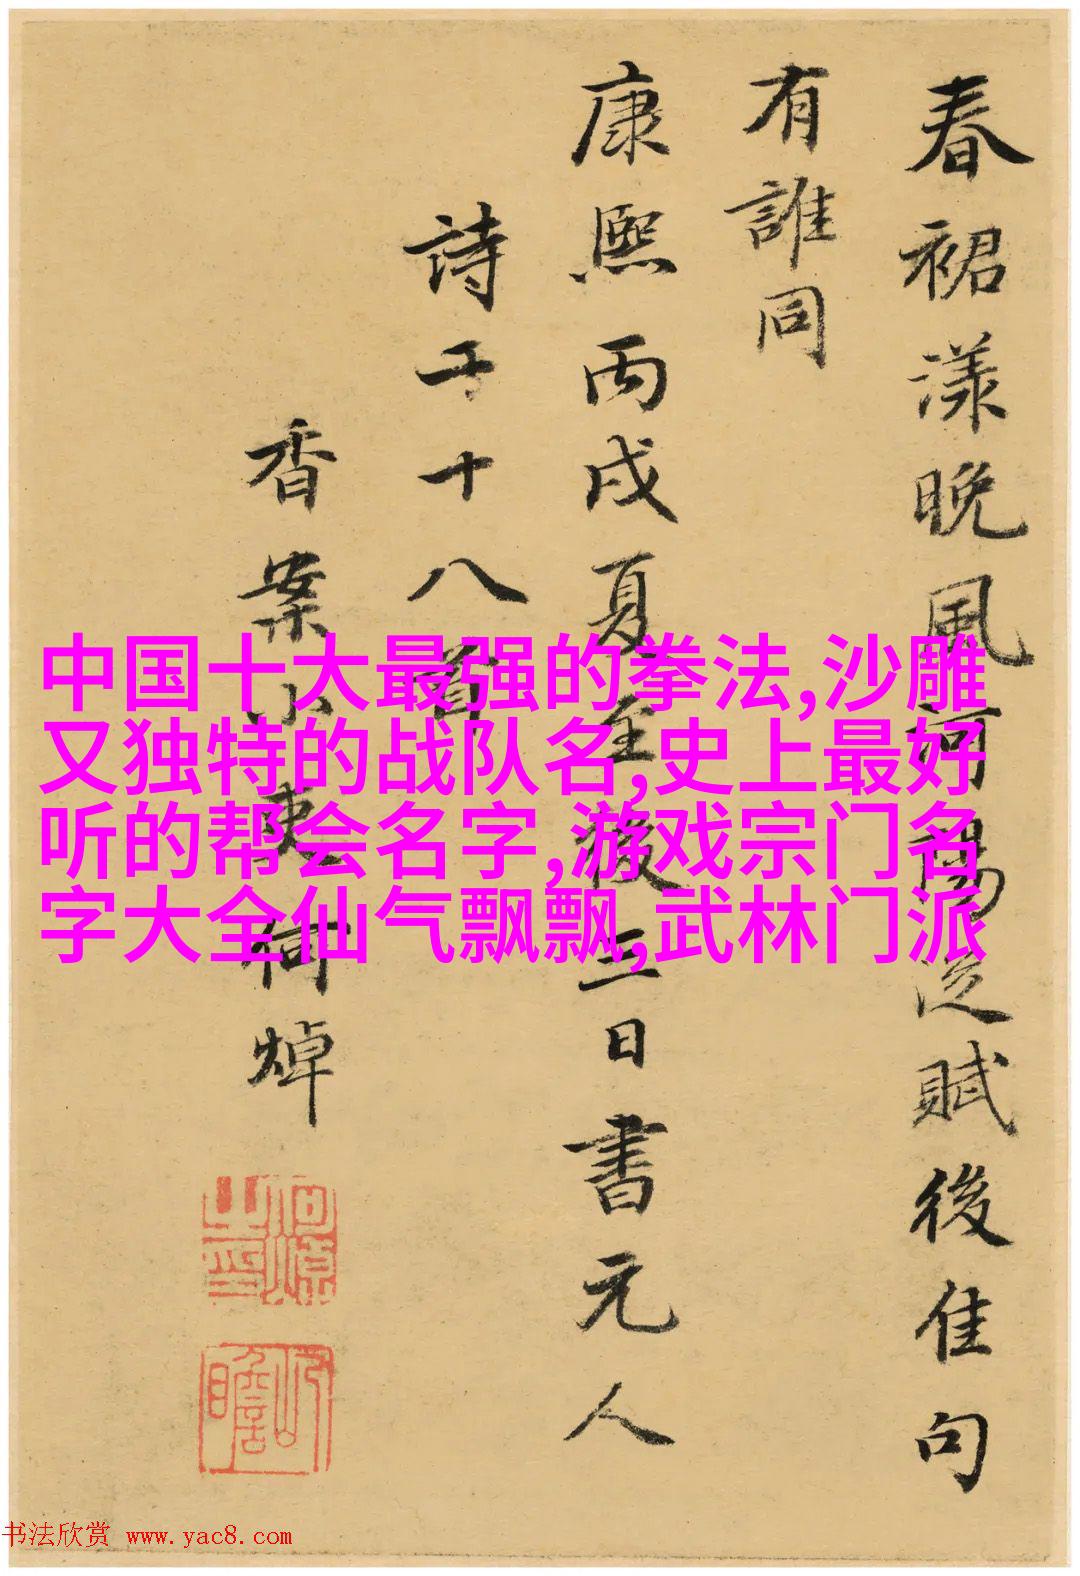 春裙漾晚風何陽從賦後佳句
有誰同
康熙丙戌夏至後三日書元人
詩五十八首
香案小吏何焯
中国十大最强的拳法,沙雕
又独特的战队名,史上最好
听的帮会名字,游戏宗门名
字大全仙气飘飘,武林门派
书法欣赏 www.yac8.com